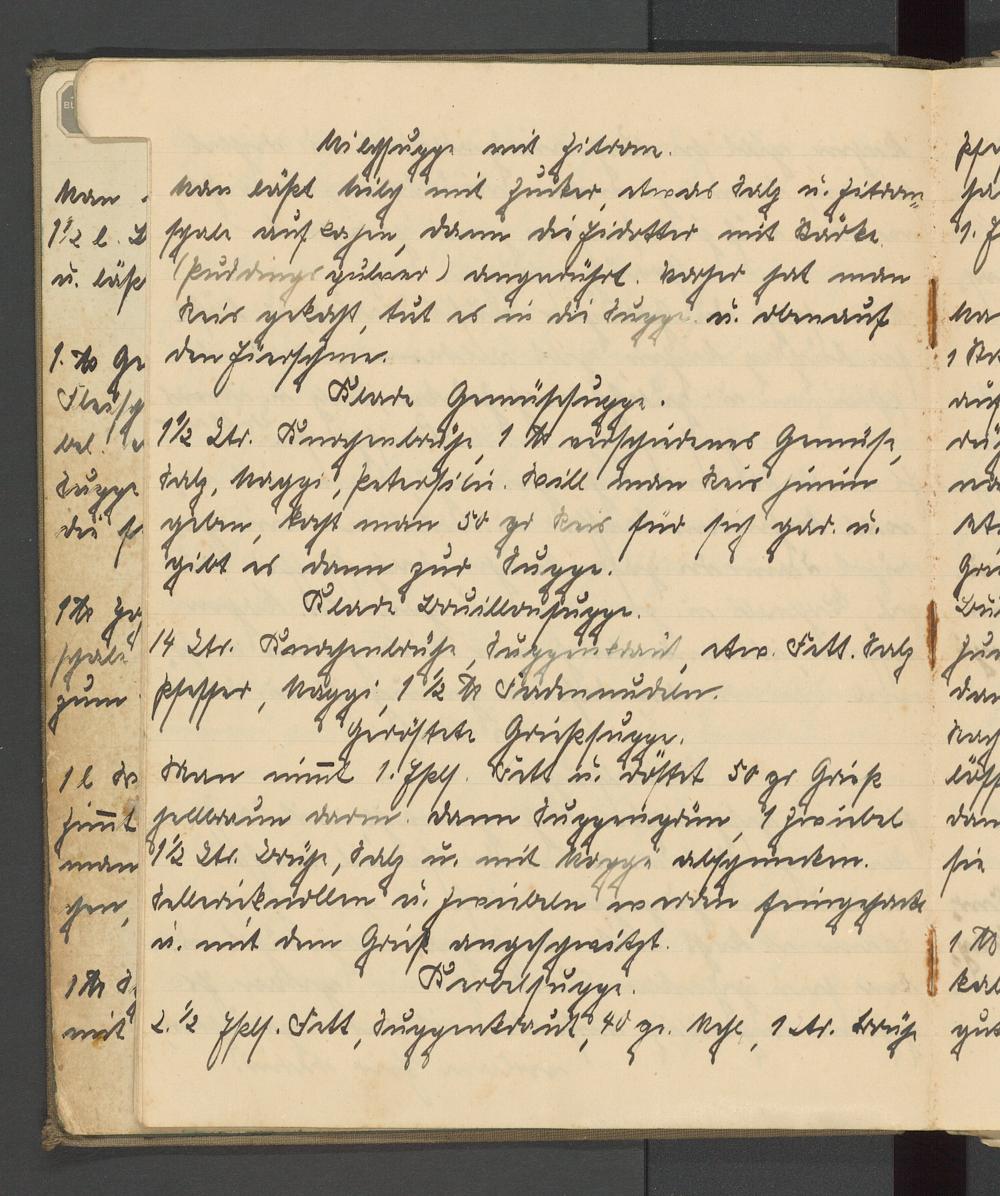 Milchsuppe mit Zitrone.
Man läßt Milch mit Zucker, etwas Salz u. Zitron=
schale aufkochen, dann die Eidotter mit Stärke
(Puddingspulver) angerührt. Vorher hat man
Reis gekocht, tut es in die Suppe u. obenauf
den Eierschnee.
Klare Gemüsesuppe.
1 1/2 Ltr. Knochenbrühe, 1 ℔ verschiedenes Gemüse,
Salz, Maggi, Petersilie. Will man Reis hinein
geben, kocht man 50 gr Reis für sich gar u.
gibt es dann zur Suppe.
Klare Bouillonsuppe.
14 Ltr. Knochenbrühe, Suppenkraut, etw. Fett. Salz
Pfeffer, Maggi, 1 1/2 ℔ Fadennudeln.
Geröstete Grießsuppe.
Man nim̄t 1. Eßlf. Fett u. röstet 50 gr Grieß
hellbraun darin. Dann Suppengrün, 1 Zwiebel
1 1/2 Ltr. Brühe, Salz u. mit Maggi abschmecken.
Sellerieknollen u. Zwiebeln werden feingehackt
u. mit dem Grieß angeschwitzt.
Kerbelsuppe.
2. 1/2 Eßlf. Fett, Suppenkraut, 40 gr. Mehl, 1 Ltr. Brühe